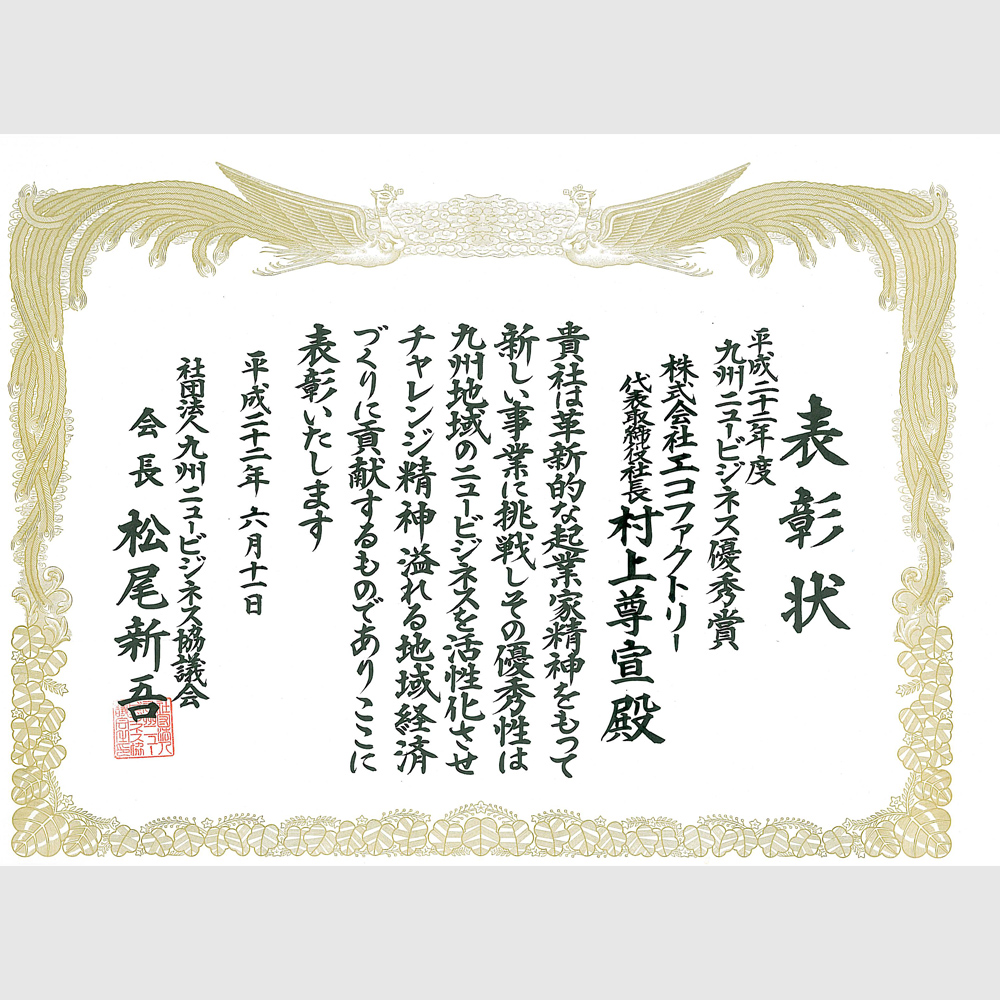 表彰状
平成二十二年度
九州ニュービジネス優秀賞
株式会社エコファクトリー
代表取締役社長 村上尊宣殿
貴社は革新的な起業家精神をもって
新しい事業に挑戦しその優秀性は
九州地域のニュービジネスを活性化させ
チャレンジ精神溢れる地域経済
づくりに貢献するものでありここに
表彰いたします
平成二十二年 六月十一日
社団法人九州ニュービジネス協議会
会長 松尾新吾